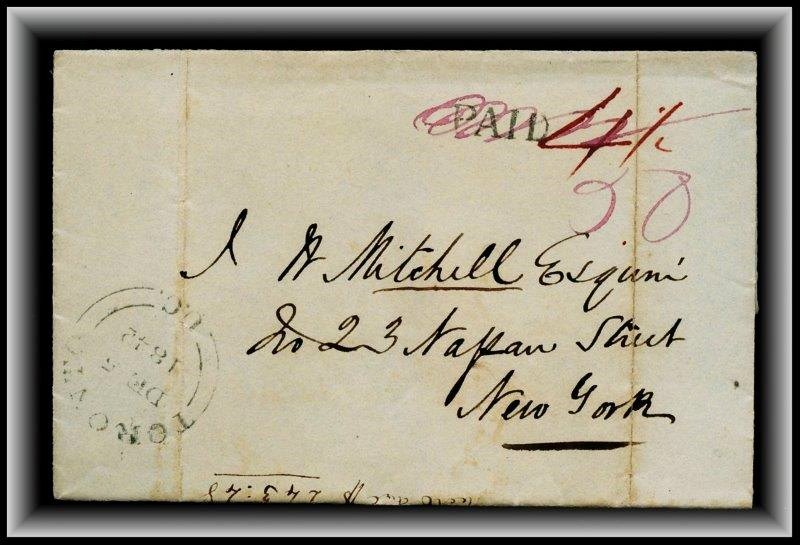 PAID 4/½
50
J W Mitchell Esquire
No 23 Nassau Street
New York
TORONTO
DE 5
1842
U.C.
243.28